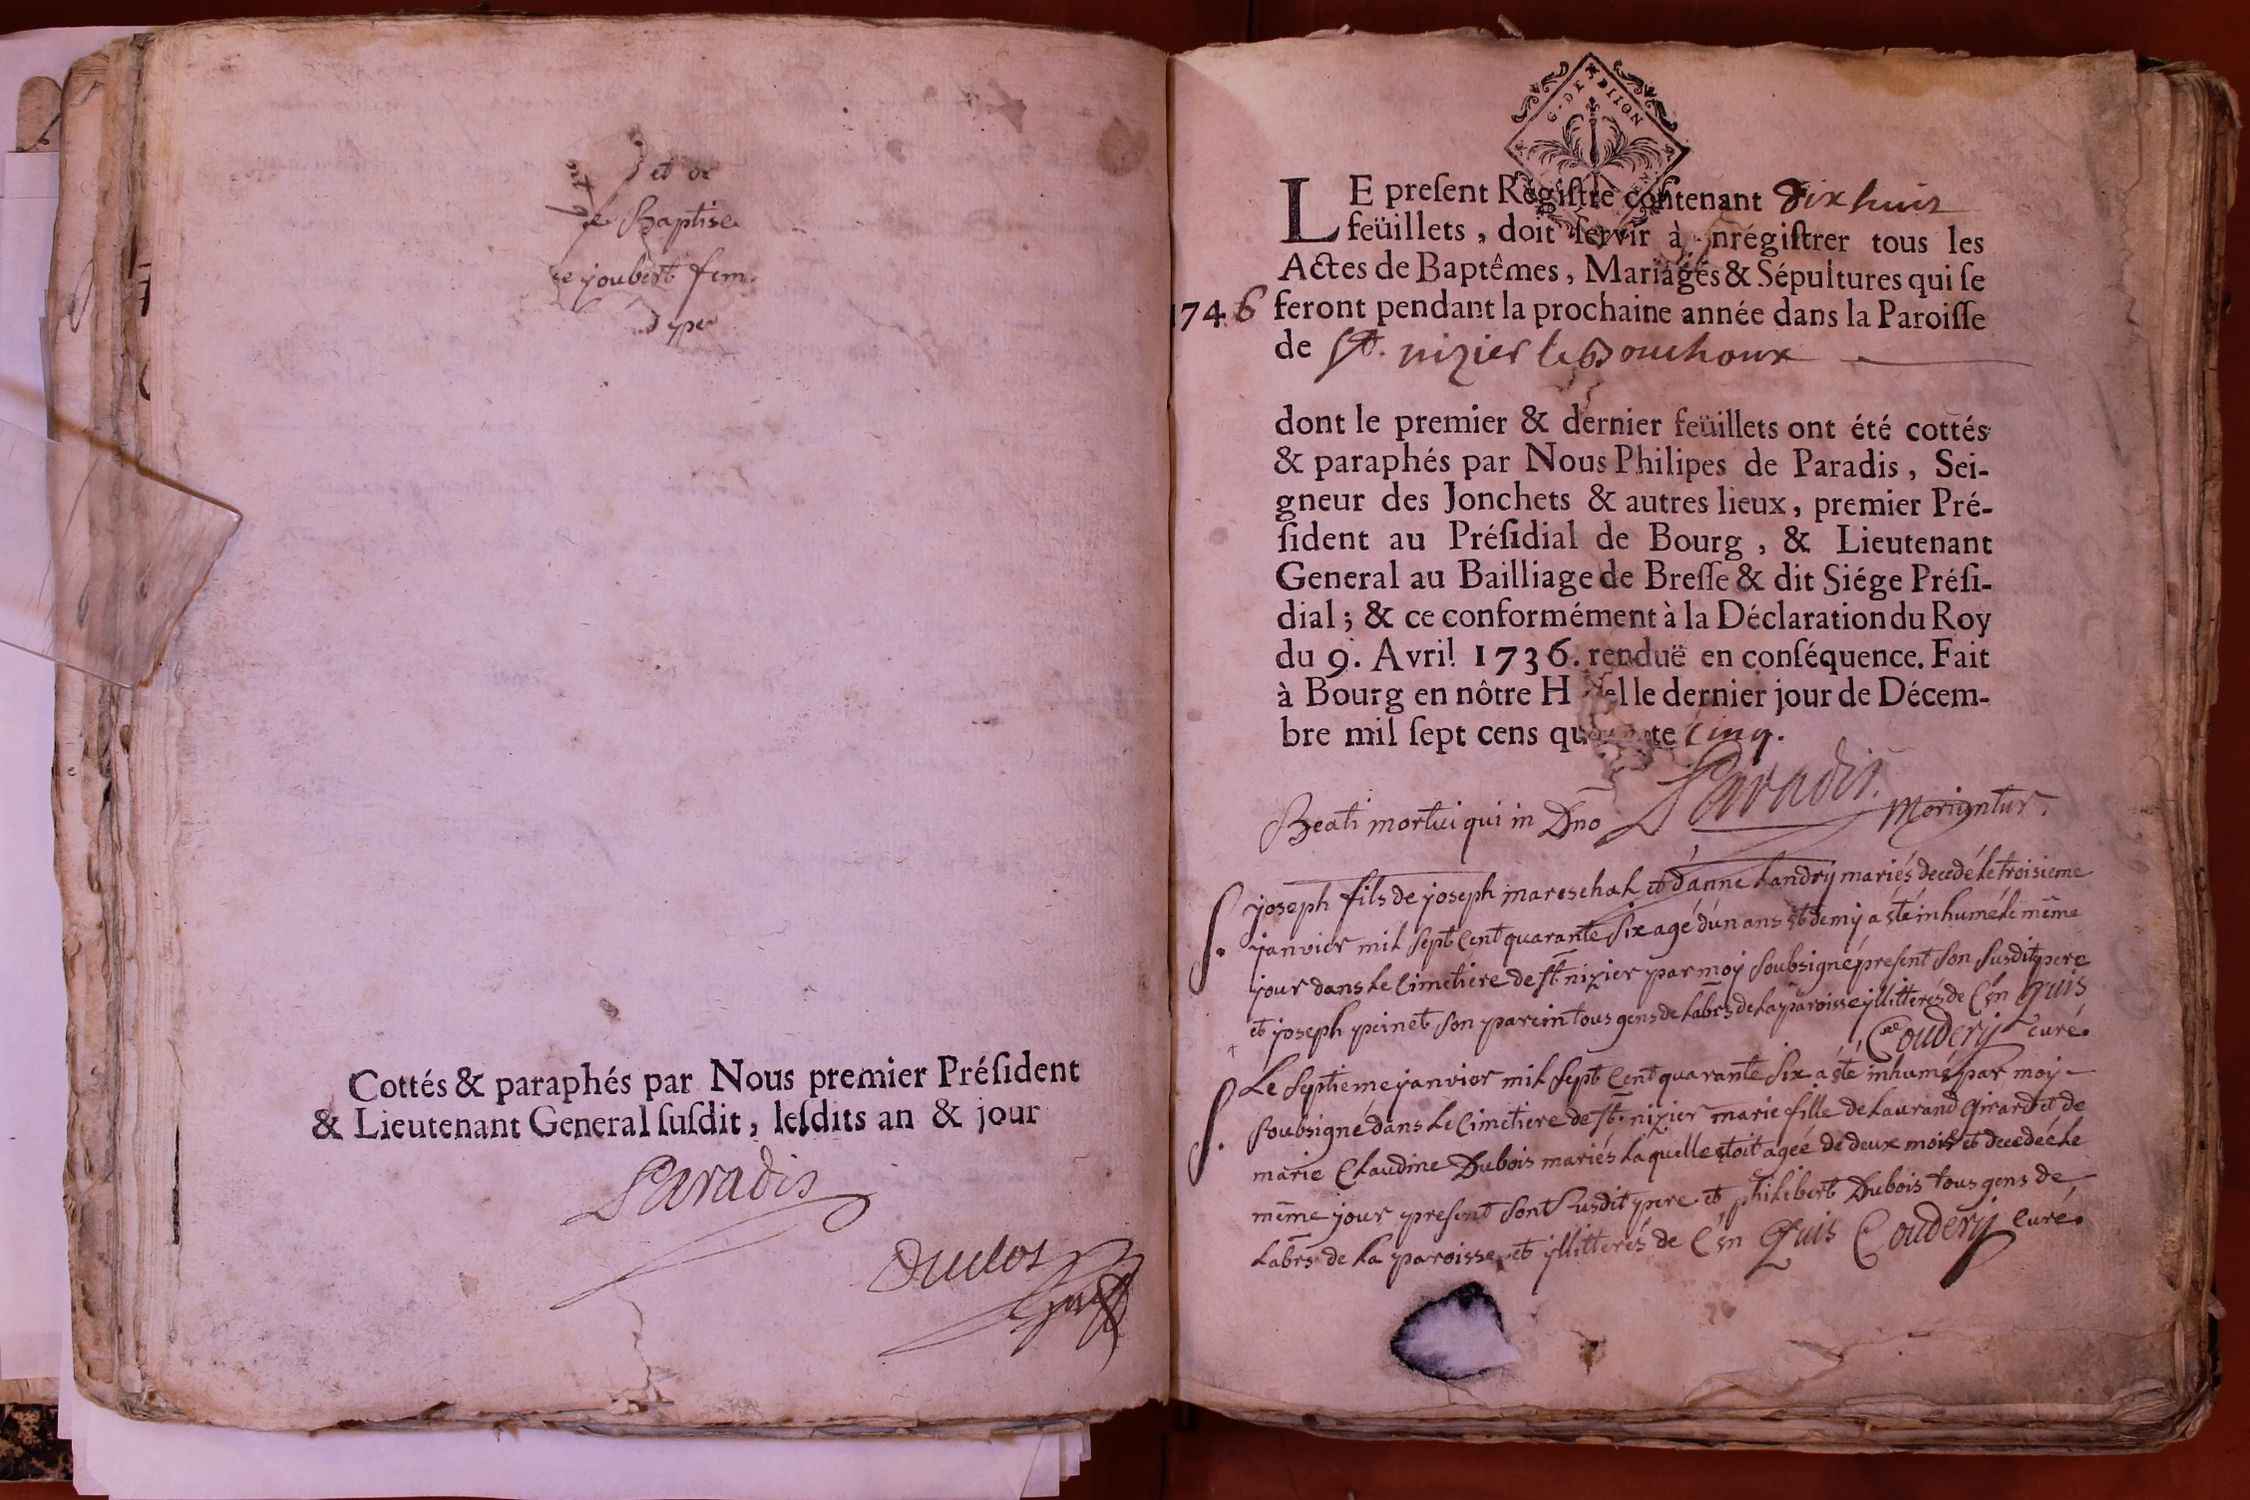 et de
Baptise
joubert fem
Cottés & paraphés par Nous premier Préſident
& Lieutenant General ſuſdit, leſdits an & jour
Paradis
Duclos
G. DE DIJON
LE preſent Regiſtre contenant dix huit
feüillets, doit ſervir à enrégiſtrer tous les
Actes de Baptêmes, Mariages & Sépultures qui ſe
1746 feront pendant la prochaine année dans la Paroiſſe
de St. nizier le Bouchoux
dont le premier & dernier feüillets ont été cottés
& paraphés par Nous Philipes de Paradis, Sei-
gneur des Jonchets & autres lieux, premier Pré-
ſident au Préſidial de Bourg, & Lieutenant
General au Bailliage de Breſſe & dit Siége Préſi-
dial; & ce conformément à la Déclaration du Roy
du 9. Avril 1736. renduë en conſéquence. Fait
à Bourg en nôtre Hôtel le dernier jour de Décem-
bre mil ſept cens quarante Cinq.
Paradis.
Beati mortui qui in Dno Moriuntur.
S. joseph fils de joseph mareschal et d'anne Landry mariés decedé le troisieme
janvier mil sept Cent quarante six agé d'un ans et demy a êté inhumé le même
jour dans le Cimetiere de st. nizier par moy soubsigné present son susdit pere
et joseph peinet son parein tous gens de labrs de la paroisse jllitterés de C'en Quis
Coudery curé.
S. Le septieme janvier mil sept Cent quarante six a êté inhumé par moy
soubsigné dans le Cimetiere de st. nizier marie fille de Laurand Girard et de
marie Claudine Dubois mariés laquelle étoit agée de deux mois et decedée le
même jour present sont susdit pere et philibert Dubois tous gens de
labrs de la paroisse et jllitterés de C'en Quis Coudery Curé.